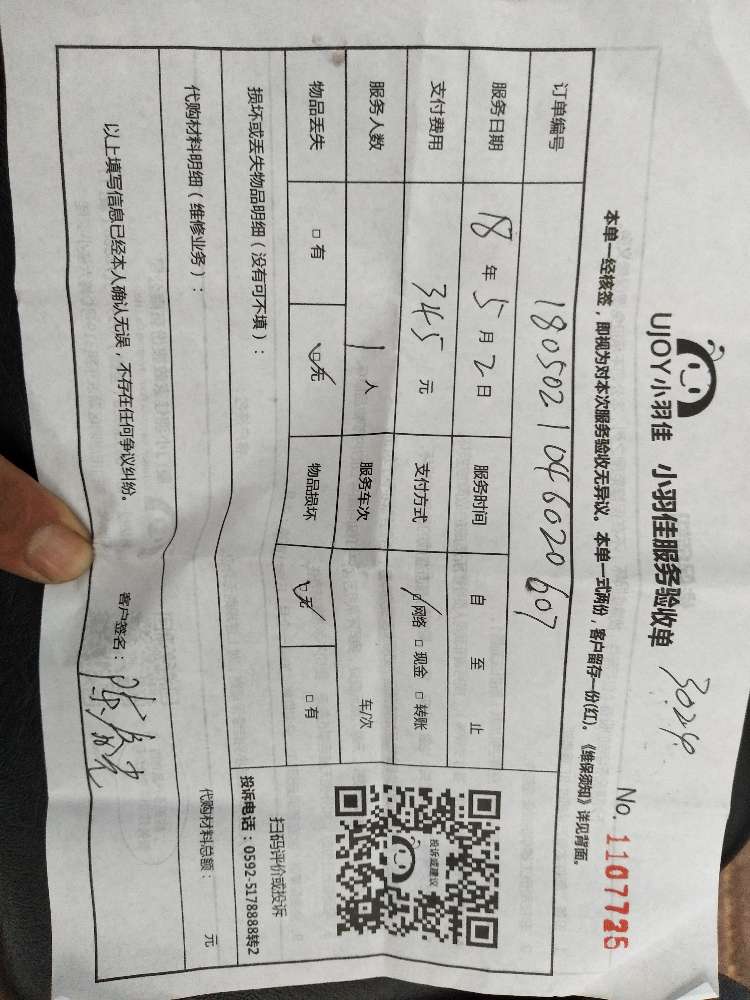 UJOY小羽佳 小羽佳服务验收单 3024
No. 1107726
本单一经核签，即视为对本次服务验收无异议。本单一式两份，客户留存一份(红)。《维保须知》详见背面。
订单编号 1805021046020607
服务日期 18 年 5 月 2 日 服务时间 自 至 止
支付费用 345 元 支付方式 □网络 □现金 □转账
服务人数 1 人 服务车次 车/次
物品丢失 □有 □无 物品损坏 □无 □有
损坏或丢失物品明细（没有可不填）：
投诉或建议
扫码评价或投诉
投诉电话：0592-5178888转2
代购材料明细（维修业务）： 代购材料总额： 元
以上填写信息已经本人确认无误，不存在任何争议纠纷。 客户签名：